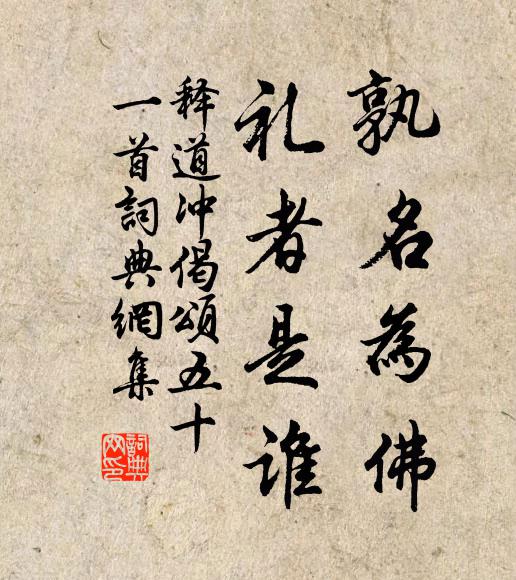 孰名為佛
礼者是谁
释道冲偈頌五十
一首詞典網集
詞典网印